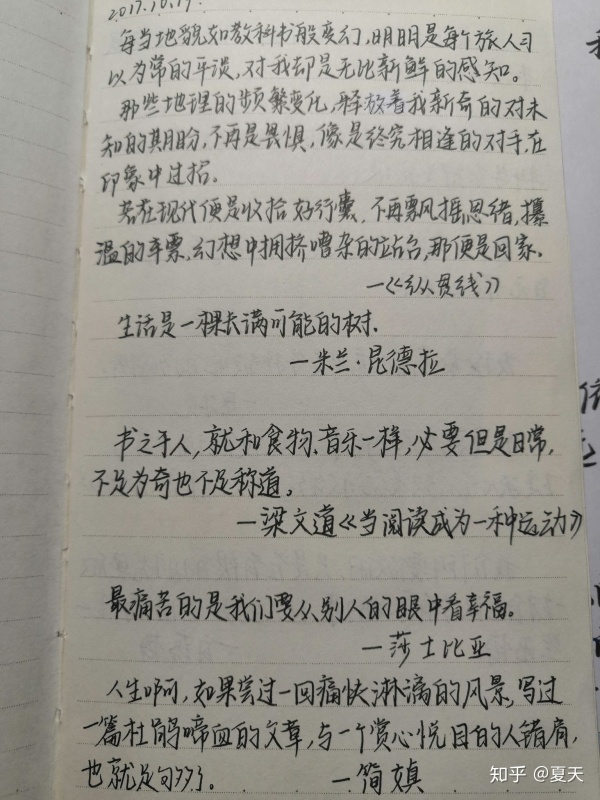 2017.10.19.
每当地貌如教科书般变幻,明明是每个旅人习
以为常的平谈,对我却是无比新鲜的感知。
那些地理的频繁变化,释放着我新奇的对未
知的期盼,不再是畏惧,像是终究相逢的对手,在
印象中过招。
若在现代便是收拾好行囊,不再飘摇思绪,攥
温的车票,幻想中拥挤嘈杂的站台,那便是回家。
—《纵贯线》
生活是一棵长满可能的树.
—米兰·昆德拉
书之于人,就和食物、音乐一样,必要但是日常,
不足为奇也不足称道。
—梁文道《当阅读成为一种运动》
最痛苦的是我们要从别人的眼中看幸福。
—莎士比亚
人生啊,如果尝过一回痛快淋漓的风景,写过
一篇杜鹃啼血的文章,与一个赏心悦目的人错肩,
也就足够了。 —简媜
知乎 @夏天